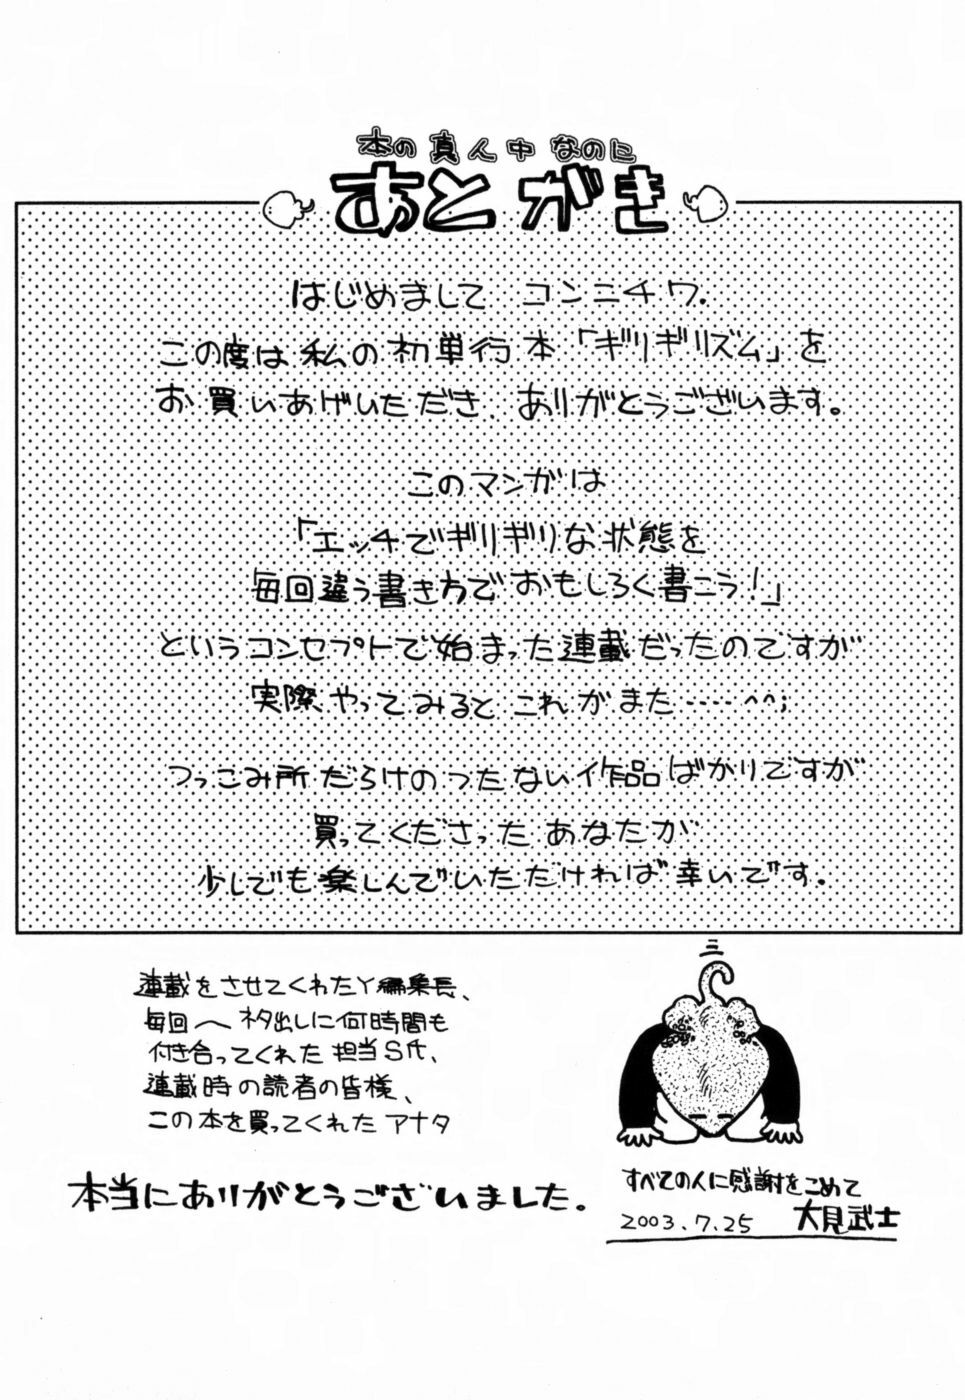 本の真ん中なのに
あとがき
はじめまして コンニチワ.
この度は私の初単行本「ギリギリズム」を
お買いあげいただき、ありがとうございます。
このマンガは
「エッチでギリギリな状態を
毎回違う書き方でおもしろく書こう！」
というコンセプトで始まった連載だったのですが
実際やってみると これがまた……^^;
つっこみ所だらけのつたない作品ばかりですが
買ってくださった あなたが
少しでも楽しんでいただければ幸いです。
連載をさせてくれたY編集長、
毎回へネタ出しに何時間も
付き合ってくれた 担当S氏、
連載時の読者の皆様、
この本を買ってくれた アナタ
本当にありがとうございました。
すべての人に感謝をこめて
2003.7.25 大見武士